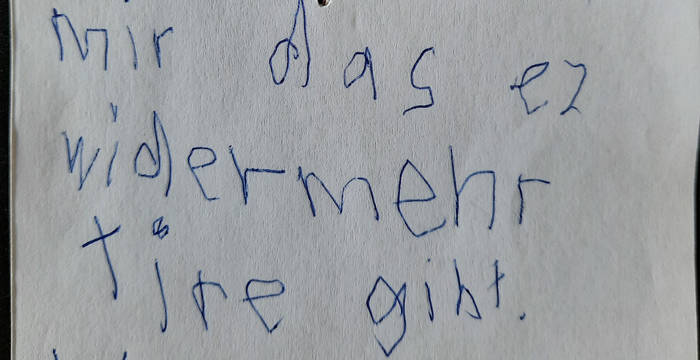 mir das ez
widermehr
tire gibt.